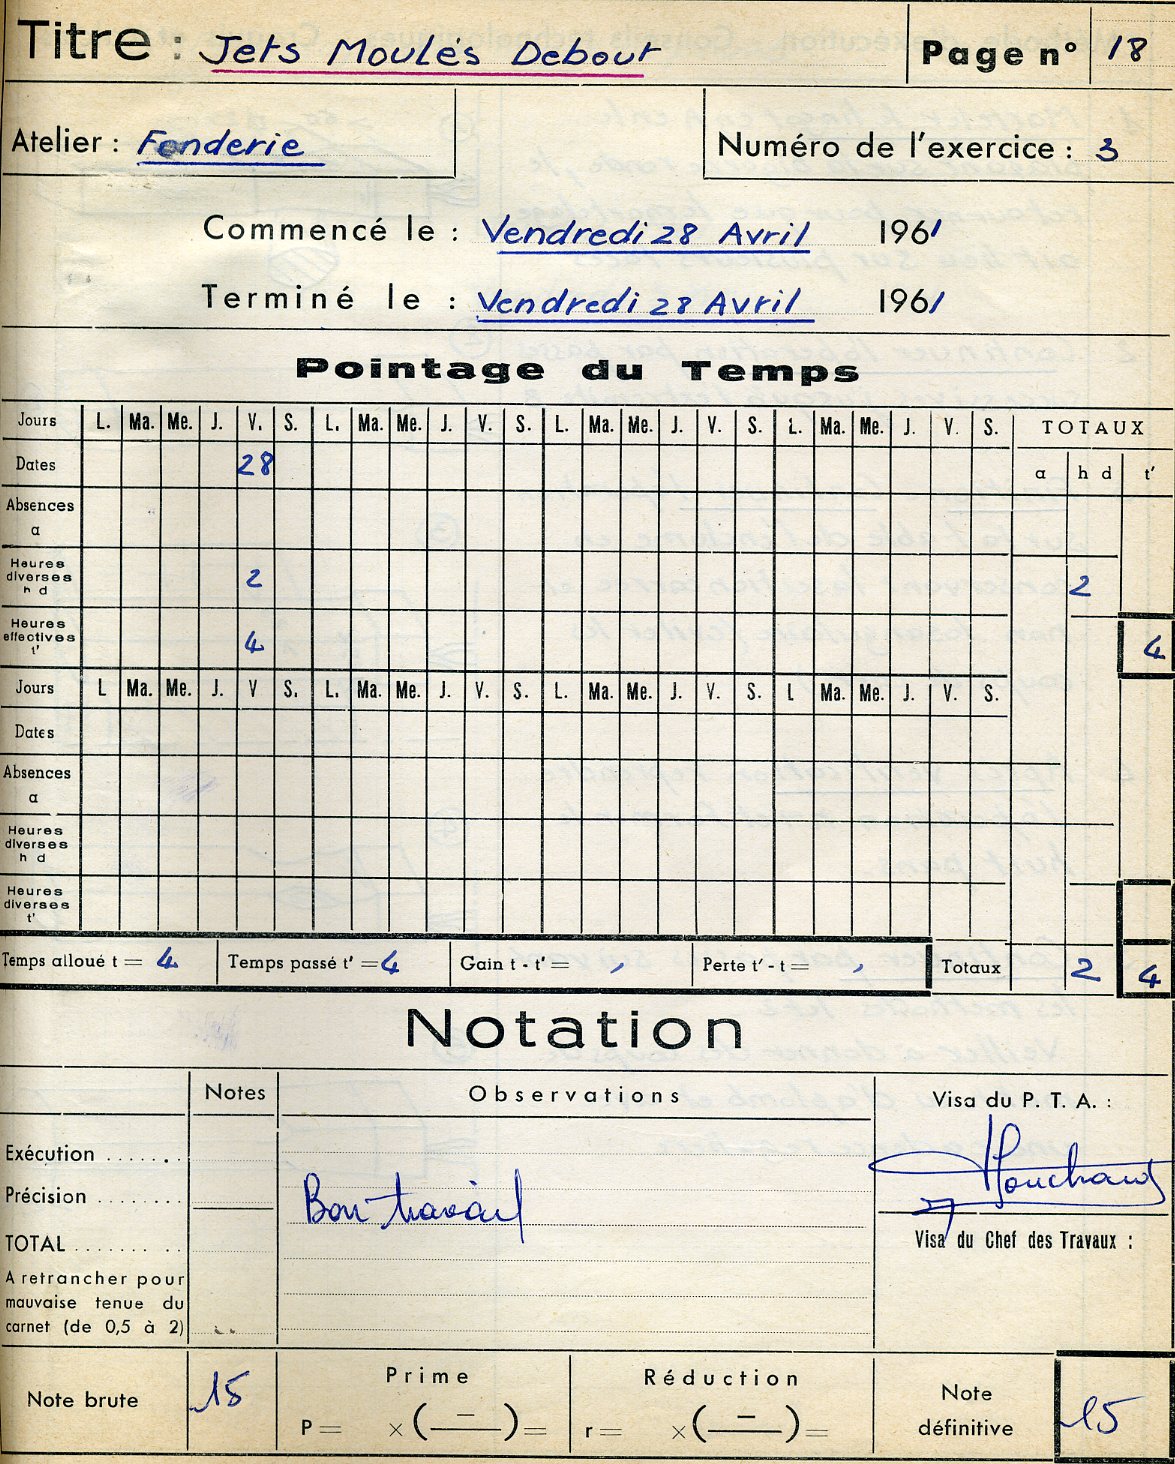 Titre : Jets Moulés Debout Page n° 18
Atelier : Fonderie Numéro de l'exercice : 3
Commencé le : Vendredi 28 Avril 1961
Terminé le : Vendredi 28 Avril 1961
Pointage du Temps
Jours L. Ma. Me. J. V. S. L. Ma. Me. J. V. S. L. Ma. Me. J. V. S. L. Ma. Me. J. V. S. TOTAUX
Dates 28 a h d t'
Absences
a
Heures
diverses 2 2
h d
Heures
effectives 4 4
t'
Jours L Ma. Me. J. V S. L. Ma. Me. J. V. S. L. Ma. Me. J. V. S. L Ma. Me. J. V. S.
Dates
Absences
a
Heures
diverses
h d
Heures
diverses
t'
Temps alloué t = 4 Temps passé t' = 4 Gain t - t' = Perte t' - t = Totaux 2 4
Notation
Notes Observations Visa du P. T. A. :
Exécution .......
Précision ........
Bon travail
TOTAL ........
Visa du Chef des Travaux :
A retrancher pour
mauvaise tenue du
carnet (de 0,5 à 2)
Note brute 15 Prime Réduction Note définitive 15
P = × ( — ) = r = × ( — ) =